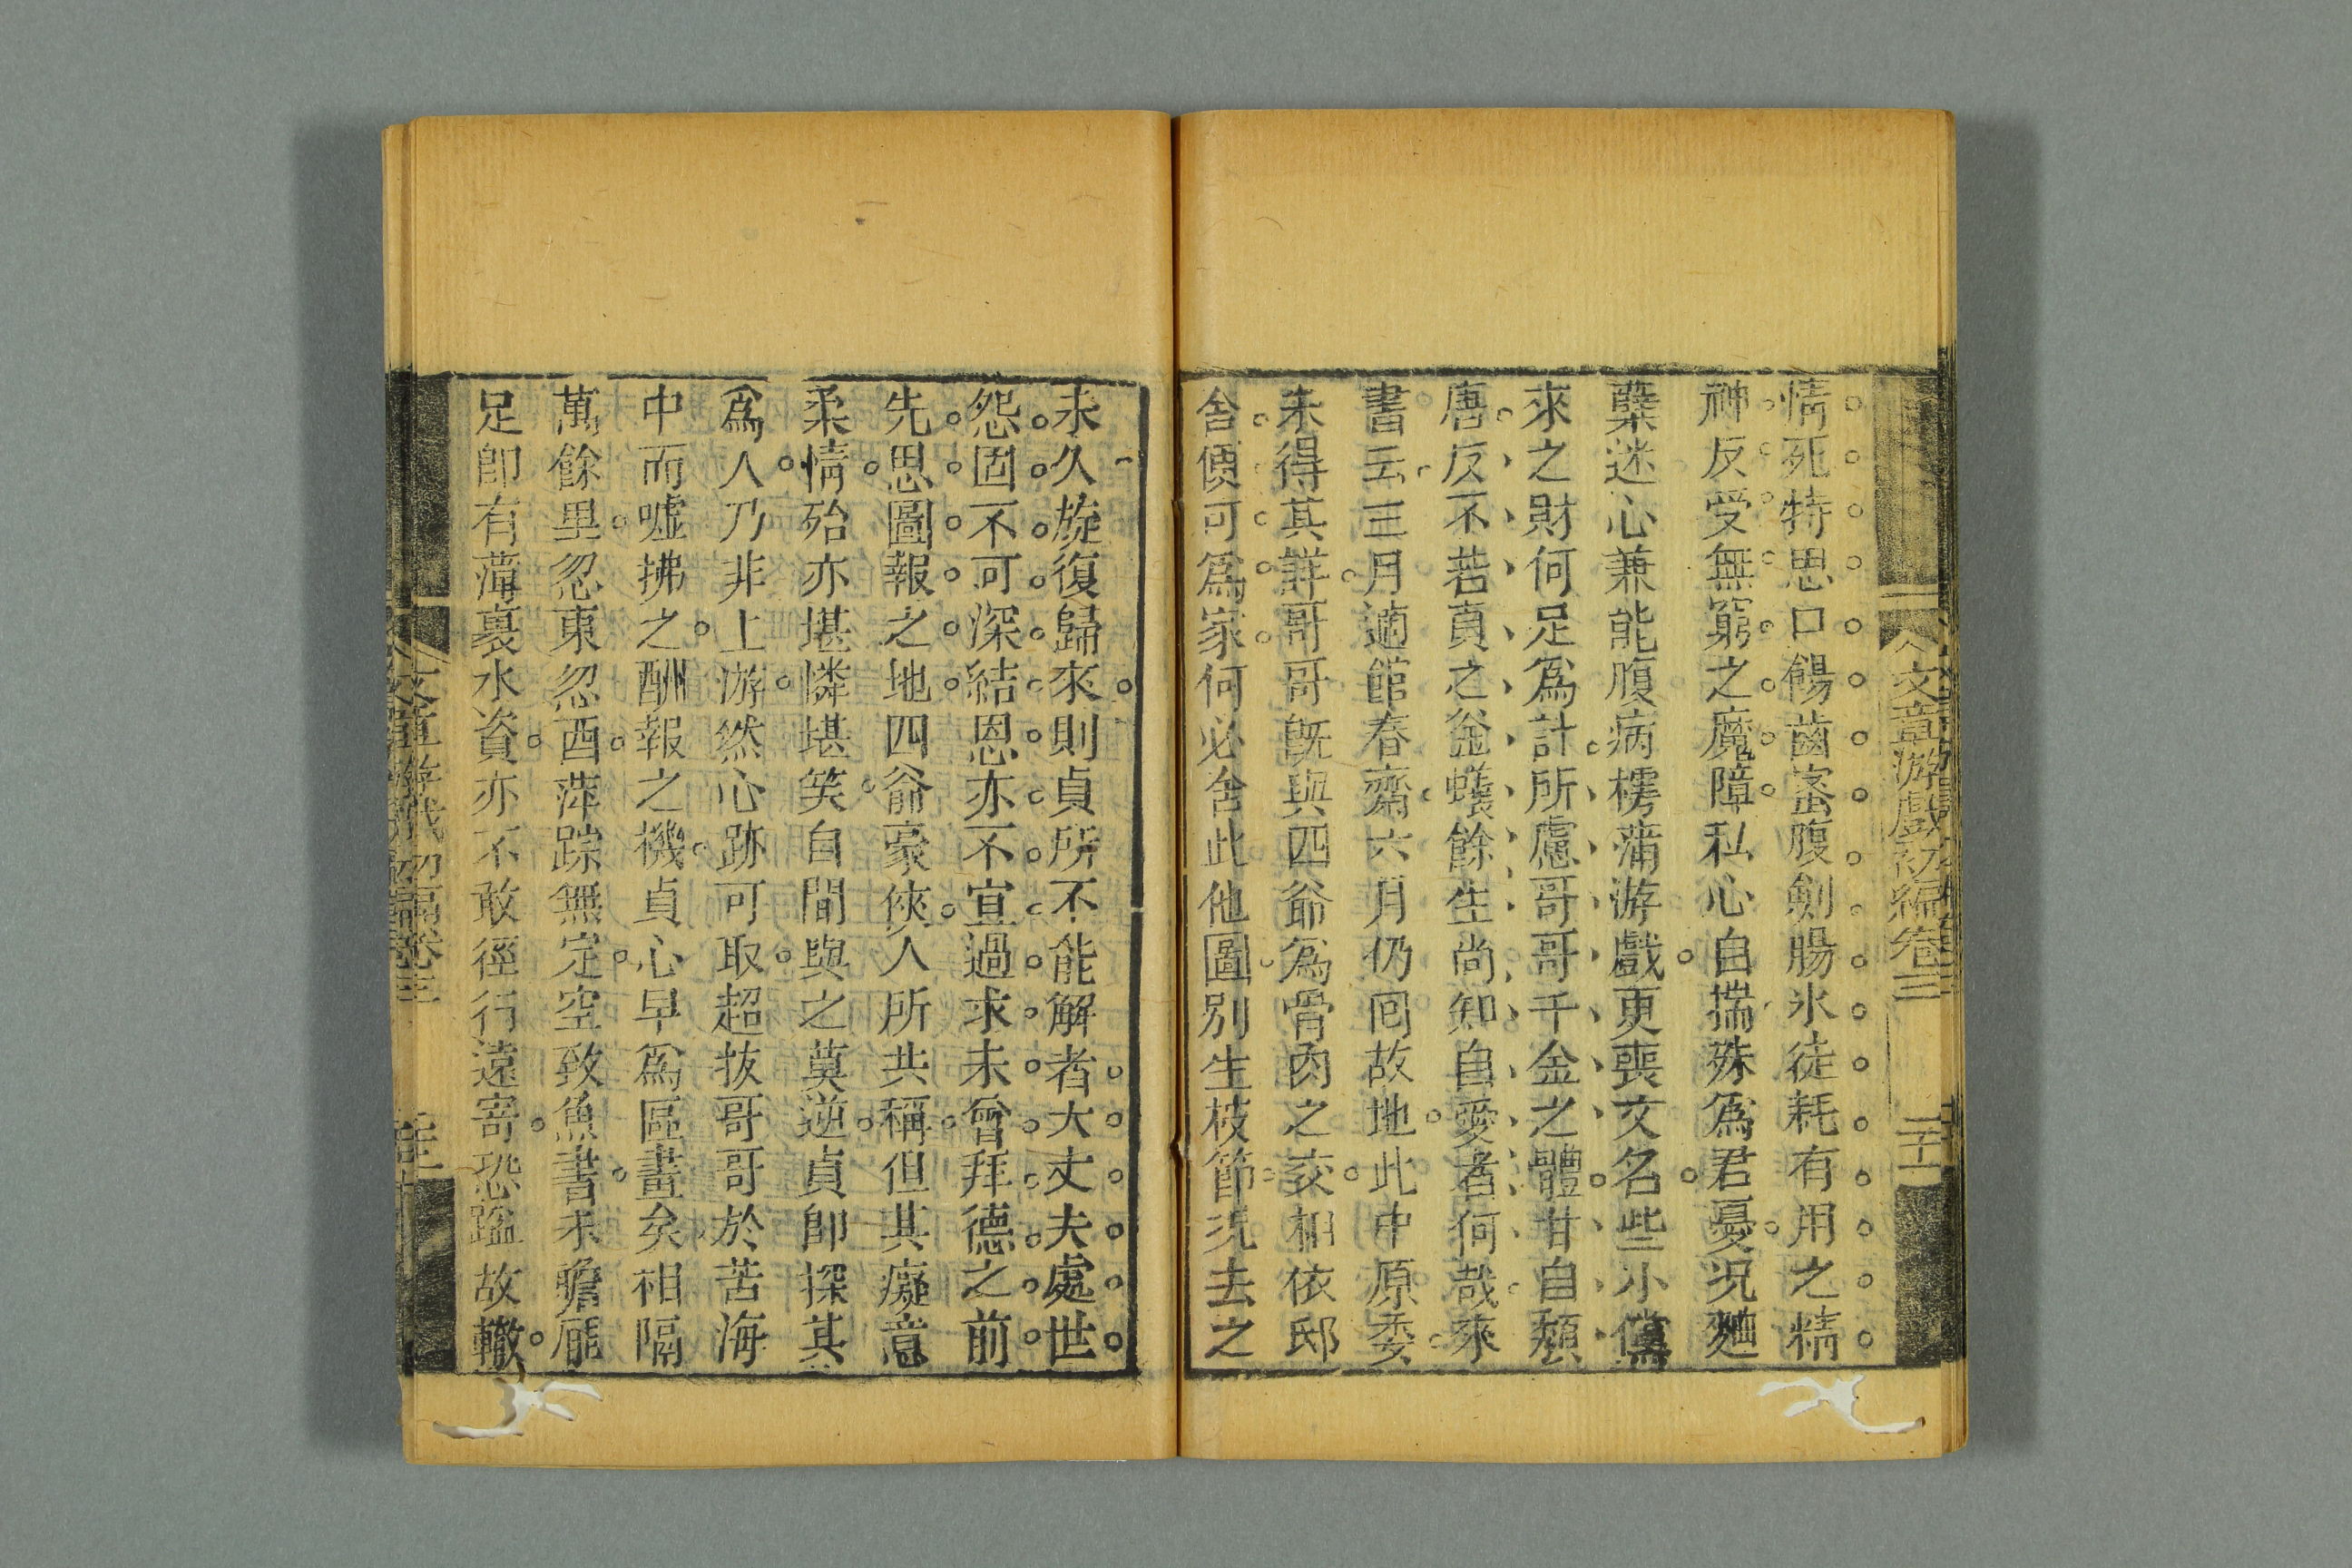 文章游戲初編卷三
二十一
情死特思口餳齒蜜腹劍腸氷徒耗有用之精
神反受無窮之魔障私心自揣殊爲君憂况麯
櫱迷心兼能腹病樗蒲游戲更喪文名些小儻
來之財何足爲計所慮哥哥千金之體甘自頹
唐反不若貞之釡蟻餘生尚知自愛者何哉來
書云三月適館春齋六月仍囘故地此中原委
未得其詳哥哥旣與四爺爲骨肉之交相依邸
舍便可爲家何必舍此他圖別生枝節况去之
未久旋復歸來則貞所不能解者大丈夫處世
怨固不可深結恩亦不宜過求未曾拜德之前
先思圖報之地四爺豪俠人所共稱但其癡意
柔情殆亦堪憐堪笑自間與之莫逆貞卽探其
爲人乃非上游然心跡可取超拔哥哥於苦海
中而噓拂之酬報之機貞心早爲區畫矣相隔
萬餘里忽東忽西萍踪無定空致魚書未瞻雁
足卽有薄裹水資亦不敢徑行遠寄恐蹈故轍
文章游戲初編卷三